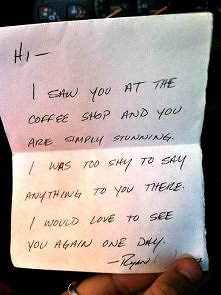 HI —
I SAW YOU AT THE
COFFEE SHOP AND YOU
ARE SIMPLY STUNNING.
I WAS TOO SHY TO SAY
ANYTHING TO YOU THERE.
I WOULD LOVE TO SEE
YOU AGAIN ONE DAY.
—RYAN (